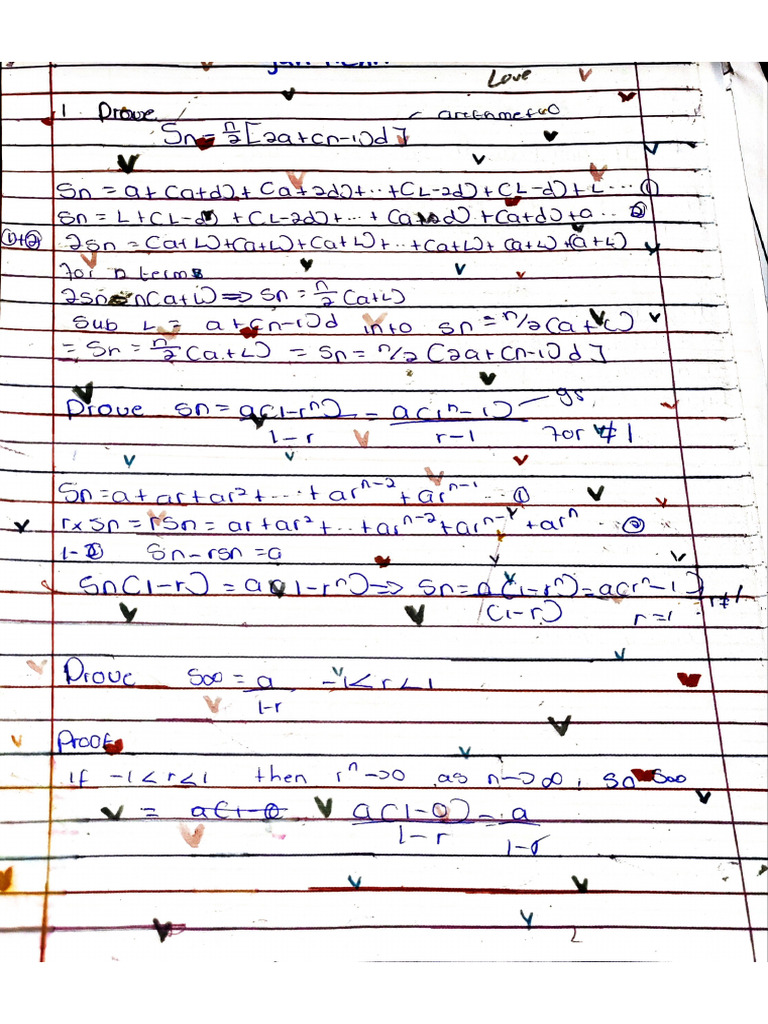 Love
1 Prove arithmetic
Sn = n/2 [2a+(n-1)d]
Sn = a+(a+d)+(a+2d)+..+(L-2d)+(L-d)+L...①
Sn = L+(L-d)+(L-2d)+...+(a+2d)+(a+d)+a...②
①+② 2Sn = (a+L)+(a+L)+(a+L)+..+(a+L)+(a+L)+(a+L)
for n terms
2Sn = n(a+L) ⟹ Sn = n/2 (a+L)
Sub L = a+(n-1)d into Sn = n/2(a+L)
= Sn = n/2 (a+L) = Sn = n/2 [2a+(n-1)d]
Prove Sn = a(1-rⁿ)/1-r = a(rⁿ-1)/r-1 gs for ≠ 1
Sn = a+ar+ar²+....+arⁿ⁻²+arⁿ⁻¹...①
r×Sn = rSn = ar+ar²+..+arⁿ⁻²+arⁿ⁻¹+arⁿ ..②
1-② Sn-rSn = a
Sn(1-r) = a(1-rⁿ) ⟹ Sn = a(1-rⁿ)/(1-r) = a(rⁿ-1)/r=1 r≠1
Prove S∞ = a/1-r -1<r<1
Proof
if -1<r<1 then rⁿ→0 as n→∞, so S∞
= a(1-0)/1-r = a/1-r
2